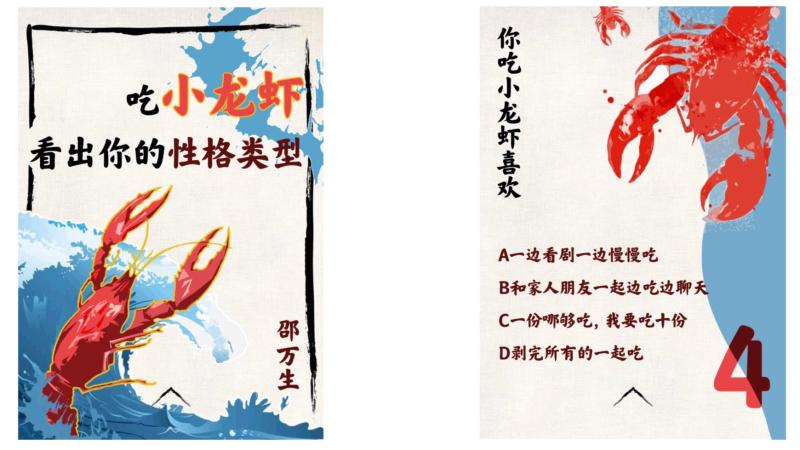 吃小龙虾
看出你的性格类型
邵万生
你吃小龙虾喜欢
A一边看剧一边慢慢吃
B和家人朋友一起边吃边聊天
C一份哪够吃，我要吃十份
D剥完所有的一起吃
4